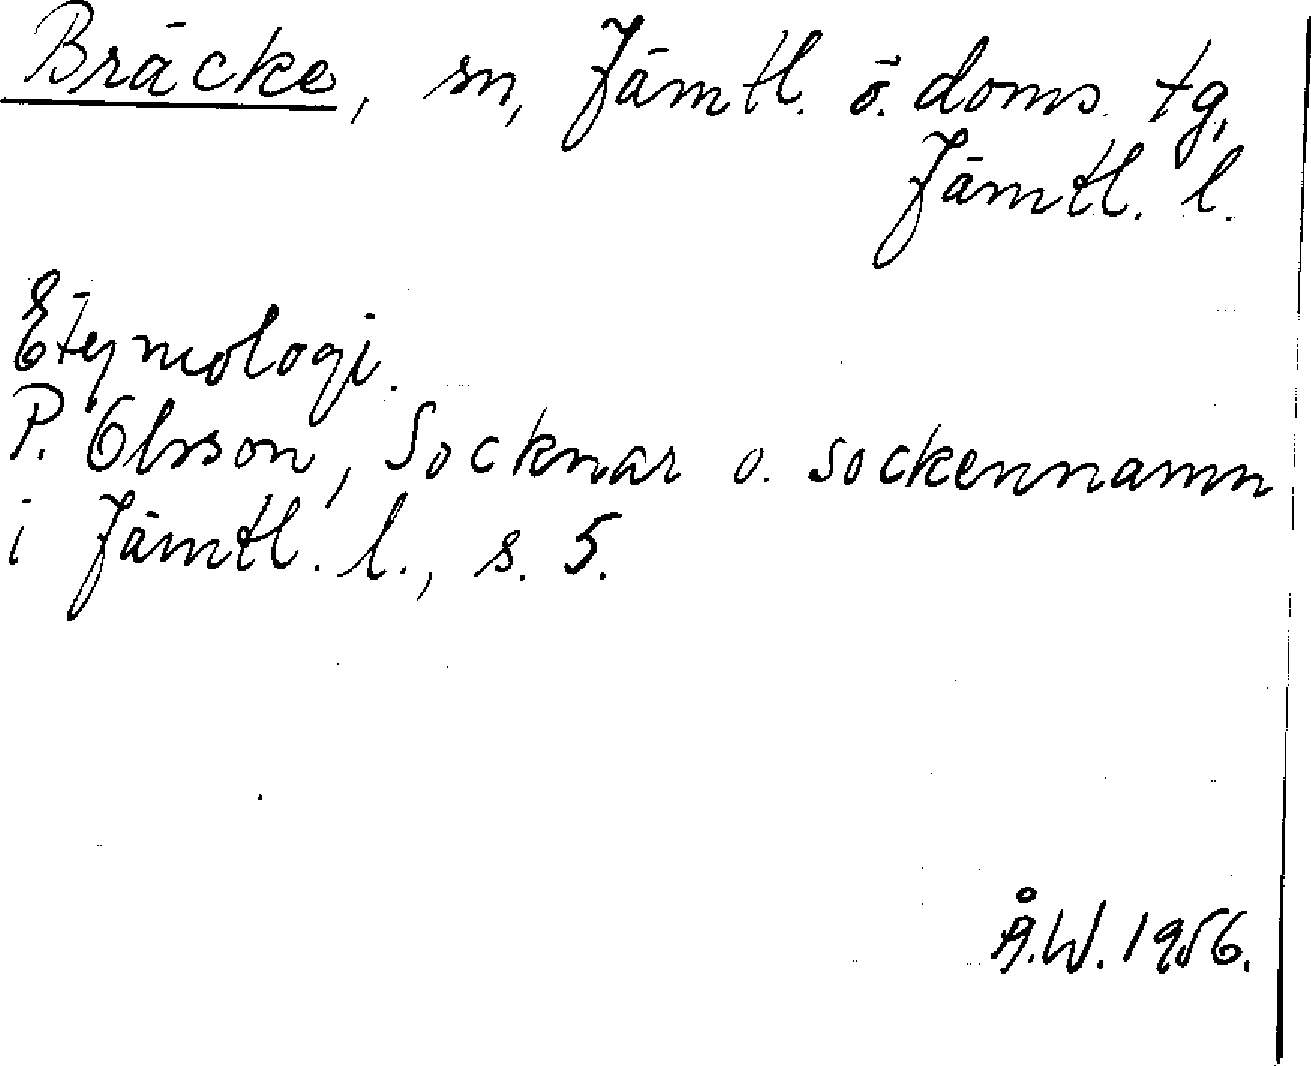 Bräcke, sn, Jämtl. ö. doms. tg,
Jämtl. l.
Etymologi.
P. Olsson, Socknar o. sockennamn
i Jämtl. l., s. 5.
Å.W. 1956.